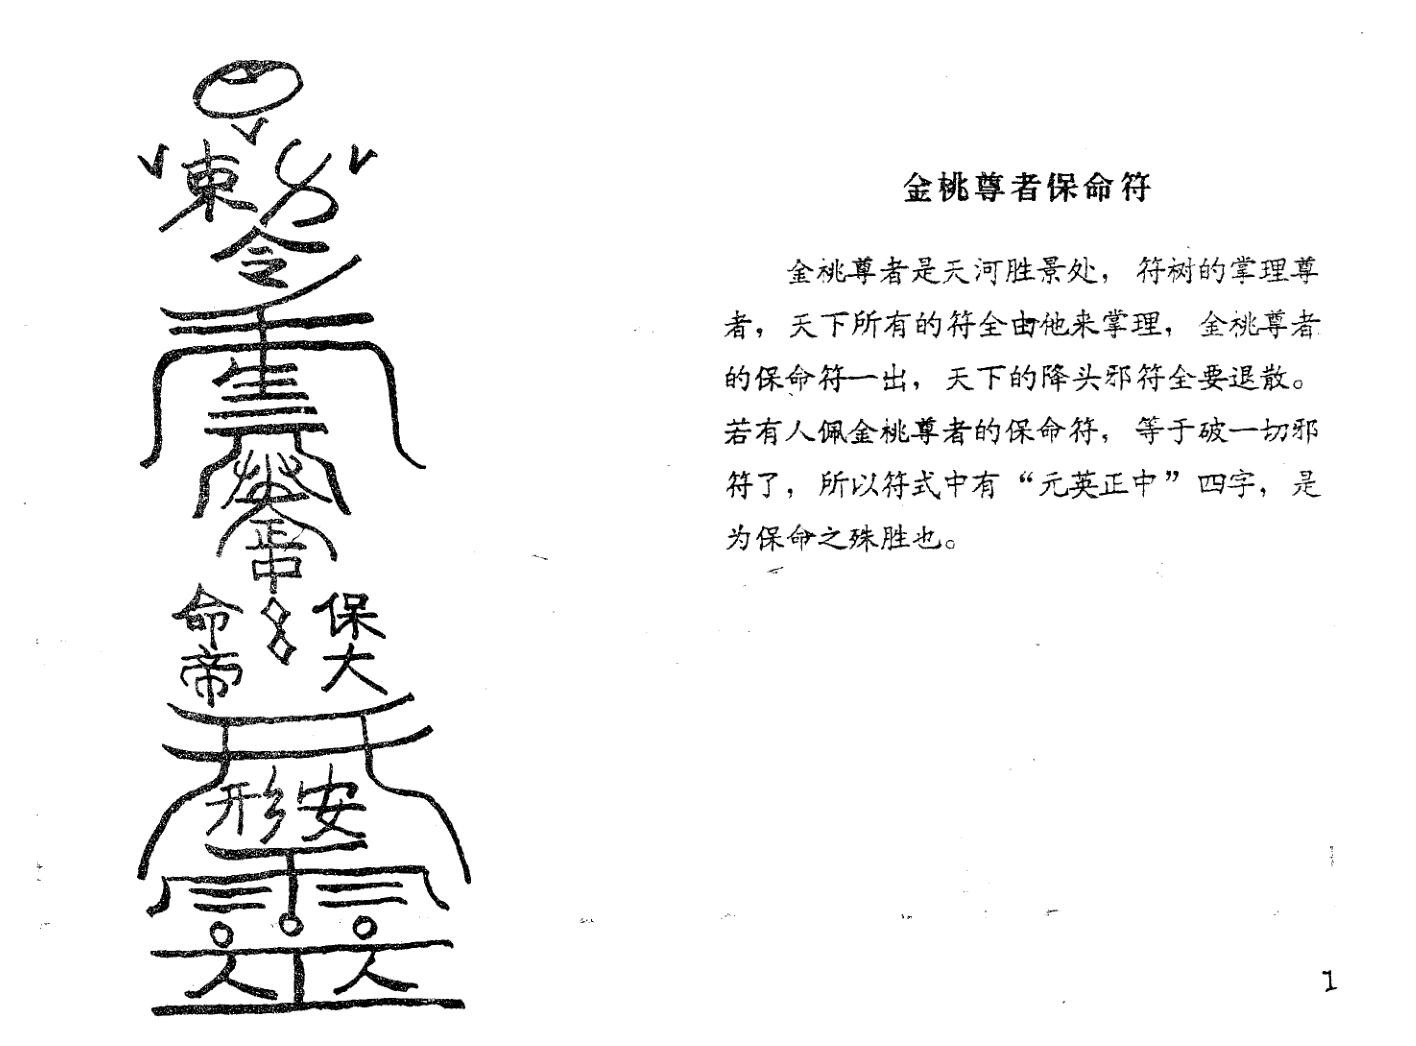 東
令
正
中
命 保
帝 大
形 安
金桃尊者保命符
金桃尊者是天河胜景处，符树的掌理尊
者，天下所有的符全由他来掌理，金桃尊者
的保命符一出，天下的降头邪符全要退散。
若有人佩金桃尊者的保命符，等于破一切邪
符了，所以符式中有“元英正中”四字，是
为保命之殊胜也。
1